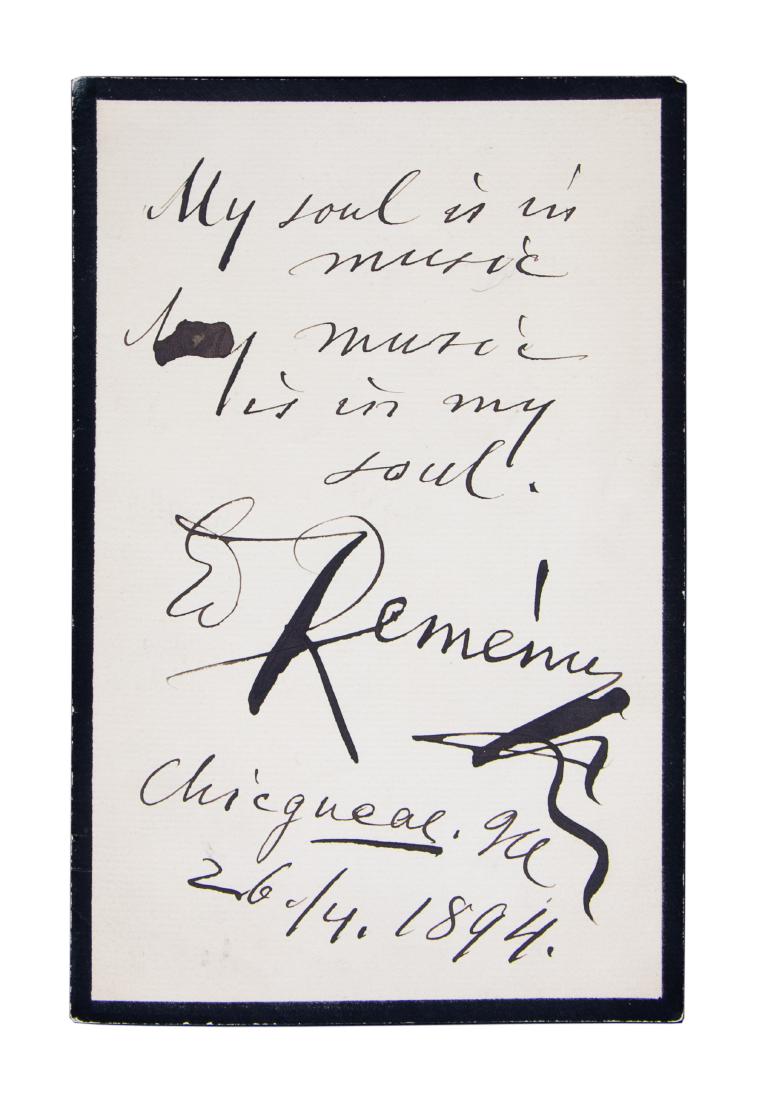 My soul is in
music
My music
is in my
soul.
Ed Reményi
Ill
26./4. 1894.